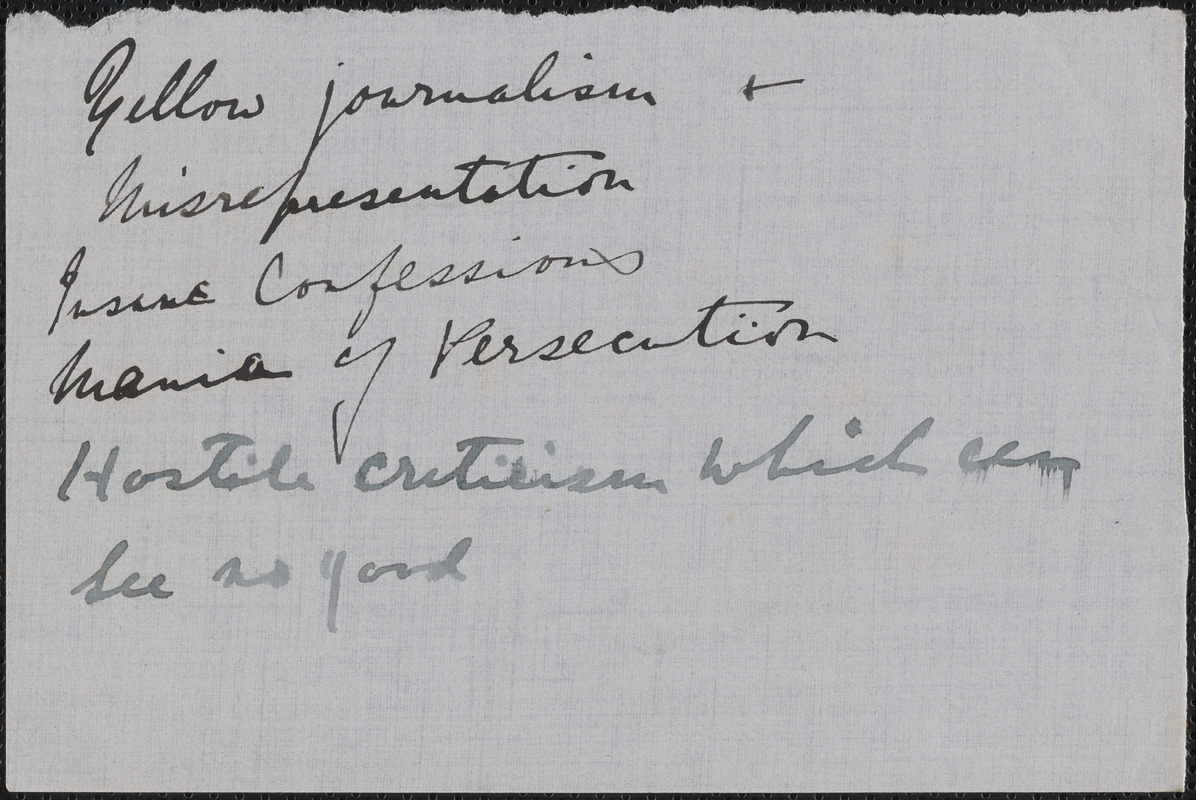 Yellow journalism +
Misrepresentation
Insane Confessions
Mania of Persecution
Hostile criticism which can
see no good